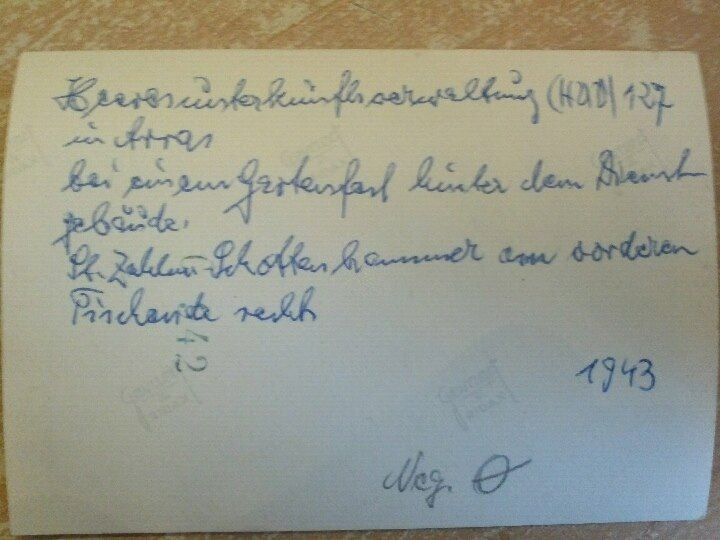 Heeresunterkünftsverwaltung (HUV) 127
in Arras
bei einem Gartenfest hinter dem Dienst
gebäude.
St. Zahlm. Schottenhammer am vorderen
Tischende rechts
42
1943
Neg.